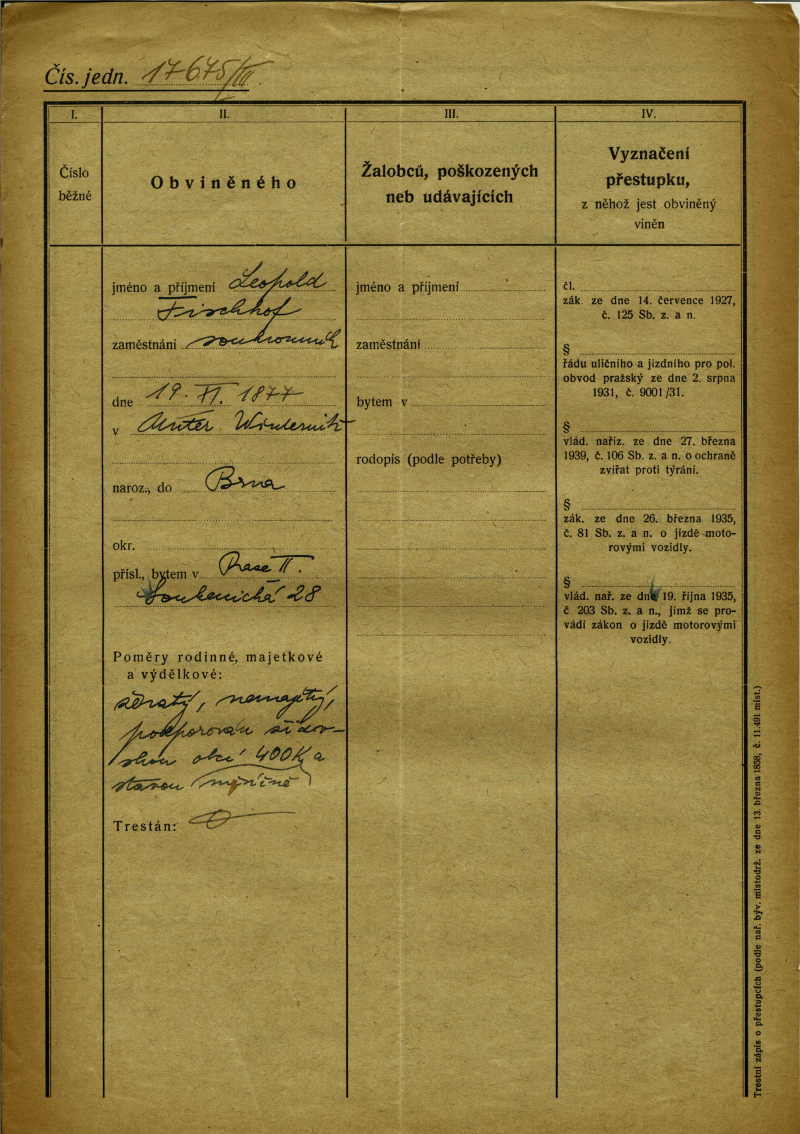 Čís. jedn. 17675/III.
I.
Číslo
běžné
II.
Obviněného
III.
Žalobců, poškozených
neb udávajících
IV.
Vyznačení
přestupku,
z něhož jest obviněný
viněn
jméno a příjmení Leopold
Fischhof
zaměstnání soukromník
dne 19. XI. 1877
v Unter Wisternik
naroz., do Brna
okr.
přísl., bytem v Praze II.
Soukenická 28
Poměry rodinné, majetkové
a výdělkové:
ženatý, nemajetný,
podporován židov-
skou obcí 400 K a
stavou měsíčně
Trestán:
jméno a příjmení
zaměstnání
bytem v
rodopis (podle potřeby)
čl.
zák. ze dne 14. července 1927,
č. 125 Sb. z. a n.
§
řádu uličního a jízdního pro pol.
obvod pražský ze dne 2. srpna
1931, č. 9001/31.
§
vlád. naříz. ze dne 27. března
1939, č. 106 Sb. z. a n. o ochraně
zvířat proti týrání.
§
zák. ze dne 26. března 1935,
č. 81 Sb. z. a n. o jízdě moto-
rovými vozidly.
§
vlád. nař. ze dne 19. října 1935,
č 203 Sb. z. a n., jímž se pro-
vádí zákon o jízdě motorovými
vozidly.
Trestní zápis o přestupcích (podle nař. býv. místodrž. ze dne 13. března 1858, č. 11.491 míst.)